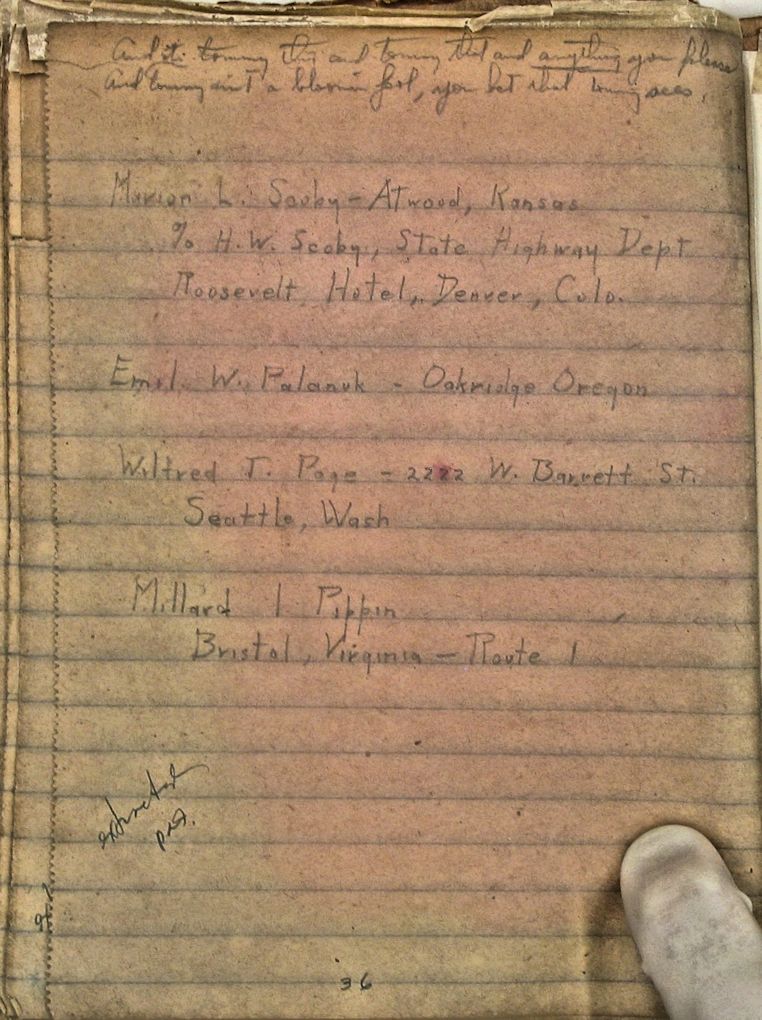 And its tommy this and tommy that and anything you please
And tommy ain't a bloomin fool, you bet that tommy sees.
Marion L. Scoby - Atwood, Kansas
% H.W. Scoby, State Highway Dept
Roosevelt Hotel, Denver, Colo.
Emil W. Palanuk - Oakridge Oregon
Wilfred T. Page - 2222 W. Barrett St.
Seattle, Wash
Millard I Pippin
Bristol, Virginia - Route 1
extracted
36